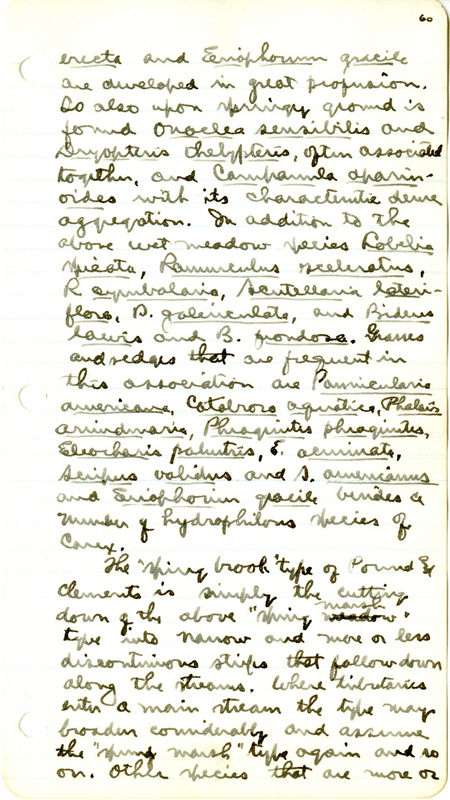 60
erecta and Eriophorum gracile
are developed in great profusion.
So also upon springy ground is
found Onoclea sensibilis and
Dryopteris thelypteris, often associated
together, and Campanula aparin-
oides with its characteristic dense
aggregation. In addition to the
above wet meadow species Lobelia
spicata, Ranunculus sceleratus,
R. cymbalaria, Scutellaria lateri-
flora, S. galericulata, and Bidens
laevis and B. frondosa. Grasses
and sedges that are frequent in
this association are Panicularia
americana, Catabrosa aquatica, Phalaris
arundinaria, Phragmites phragmites,
Eleocharis palustris, E. acuminata,
Scirpus validus and S. americanus
and Eriophorum gracile besides a
number of hydrophilous species of
Carex.
The "spring brook" type of Pound &
Clements is simply the cutting
down of the above "spring meadow marsh"
type into narrow and more or less
discontinuous strips that follow down
along the streams. Where tributaries
enter a main stream the type may
broaden considerably and assume
the "spring marsh" type again and so
on. Other species that are more or